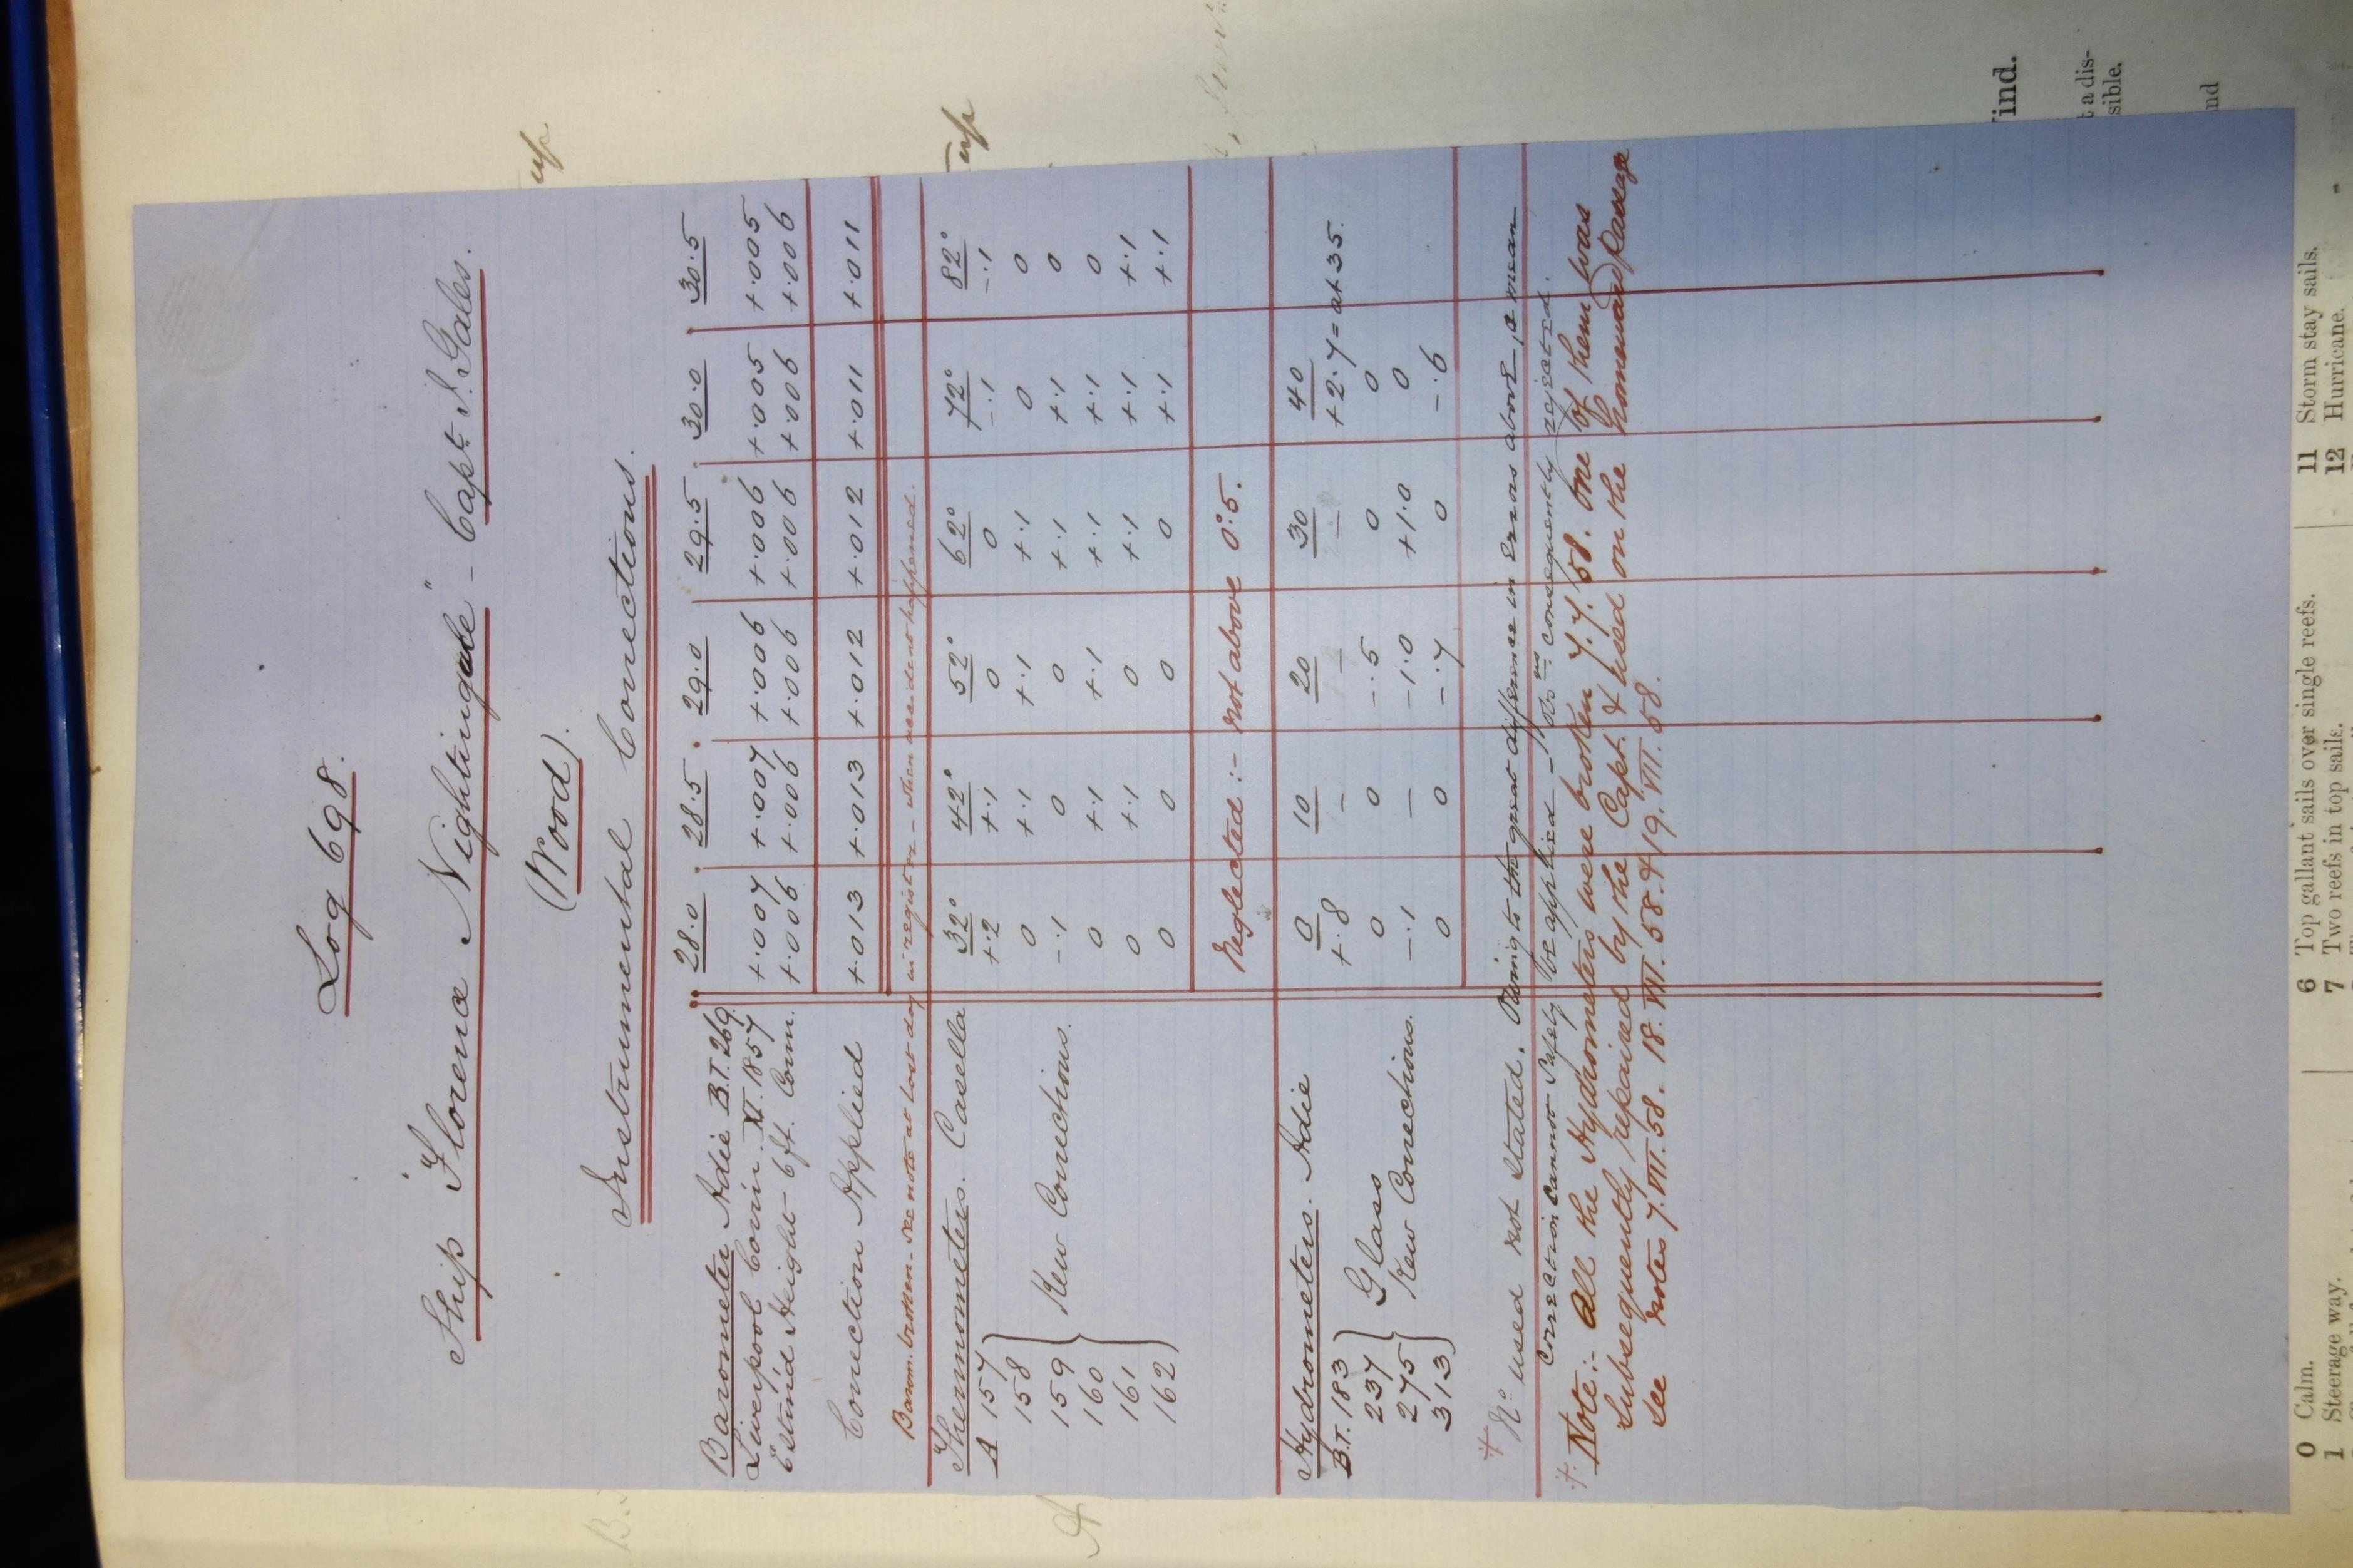 Log 698.
Ship "Florence Nightingale" - Capt. J. Gales.
(Wood).
Instrumental Corrections.
28.0 28.5 29.0 29.5 30.0 30.5
Barometer Adie B.T. 269.
Liverpool Corrn. XI. 1857 +.007 +.007 +.006 +.006 +.005 +.005
Estim'd Height - 6 ft. Corrn. +.006 +.006 +.006 +.006 +.006 +.006
Correction Applied +.013 +.013 +.012 +.012 +.011 +.011
Barom. broken - see note at last day in register - when accident happened.
Thermometers. Casella 32° 42° 52° 62° 72° 82°
A 157 +.2 +.1 0 0 -.1 -.1
158 0 +.1 +.1 +.1 0 0
159 Kew Corrections. -.1 0 0 +.1 +.1 0
160 0 +.1 +.1 +.1 +.1 0
161 0 +.1 0 +.1 +.1 +.1
162 0 0 0 0 +.1 +.1
Neglected :- not above 0°.5.
Hydrometers. Adie 0 10 20 30 40
B.T. 183 +.8 - - - +2.7 = at 35.
237 Glass 0 0 -.5 0 0
275 Kew Corrections. -.1 - -1.0 +1.0 0
313 0 0 -.7 0 -.6
+ No. used not stated. Owing to the great difference in Errors above, a mean
correction cannot safely be applied - Obsns consequently rejected.
+. Note:- All the Hydrometers were broken 7.7.58. One of them was
subsequently repaired by the Capt. & used on the homeward passage
see notes 7.VIII.58. 18.VIII.58. & 19.VIII.58.
ind.
t a dis-
sible.
nd
0 Calm.
1 Steerage way.
6 Top gallant sails over single reefs.
7 Two reefs in top sails.
11 Storm stay sails.
12 Hurricane.